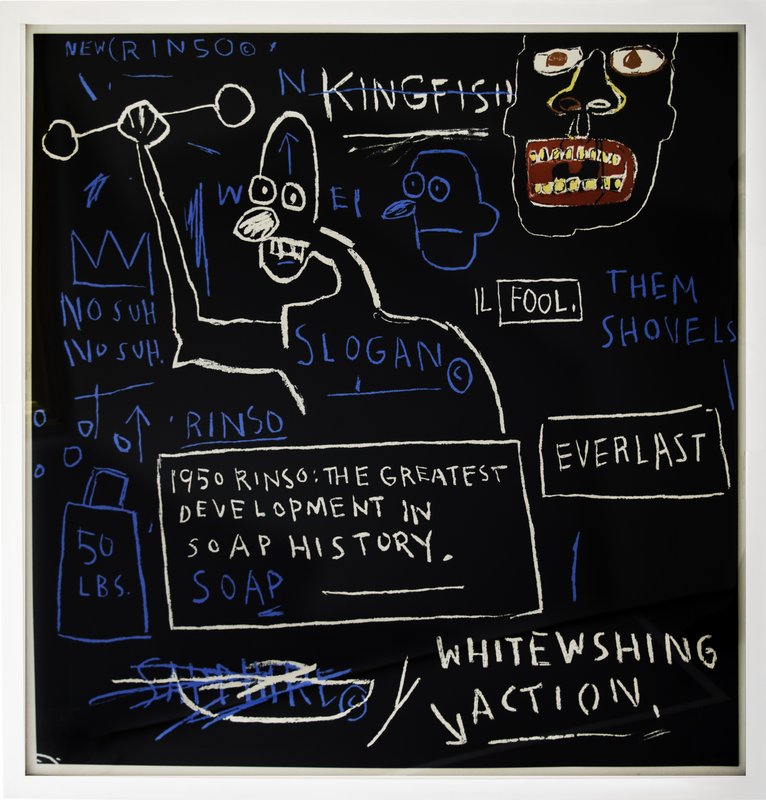 NEW (RINSO©
N KINGFISH
W EI
IL FOOL.
THEM
SHOVELS
NO SUH
NO SUH.
SLOGAN©
'RINSO
1950 RINSO: THE GREATEST
DEVELOPMENT IN
SOAP HISTORY.
SOAP
EVERLAST
50
LBS.
SAPPHIRE©
WHITEWSHING
ACTION.